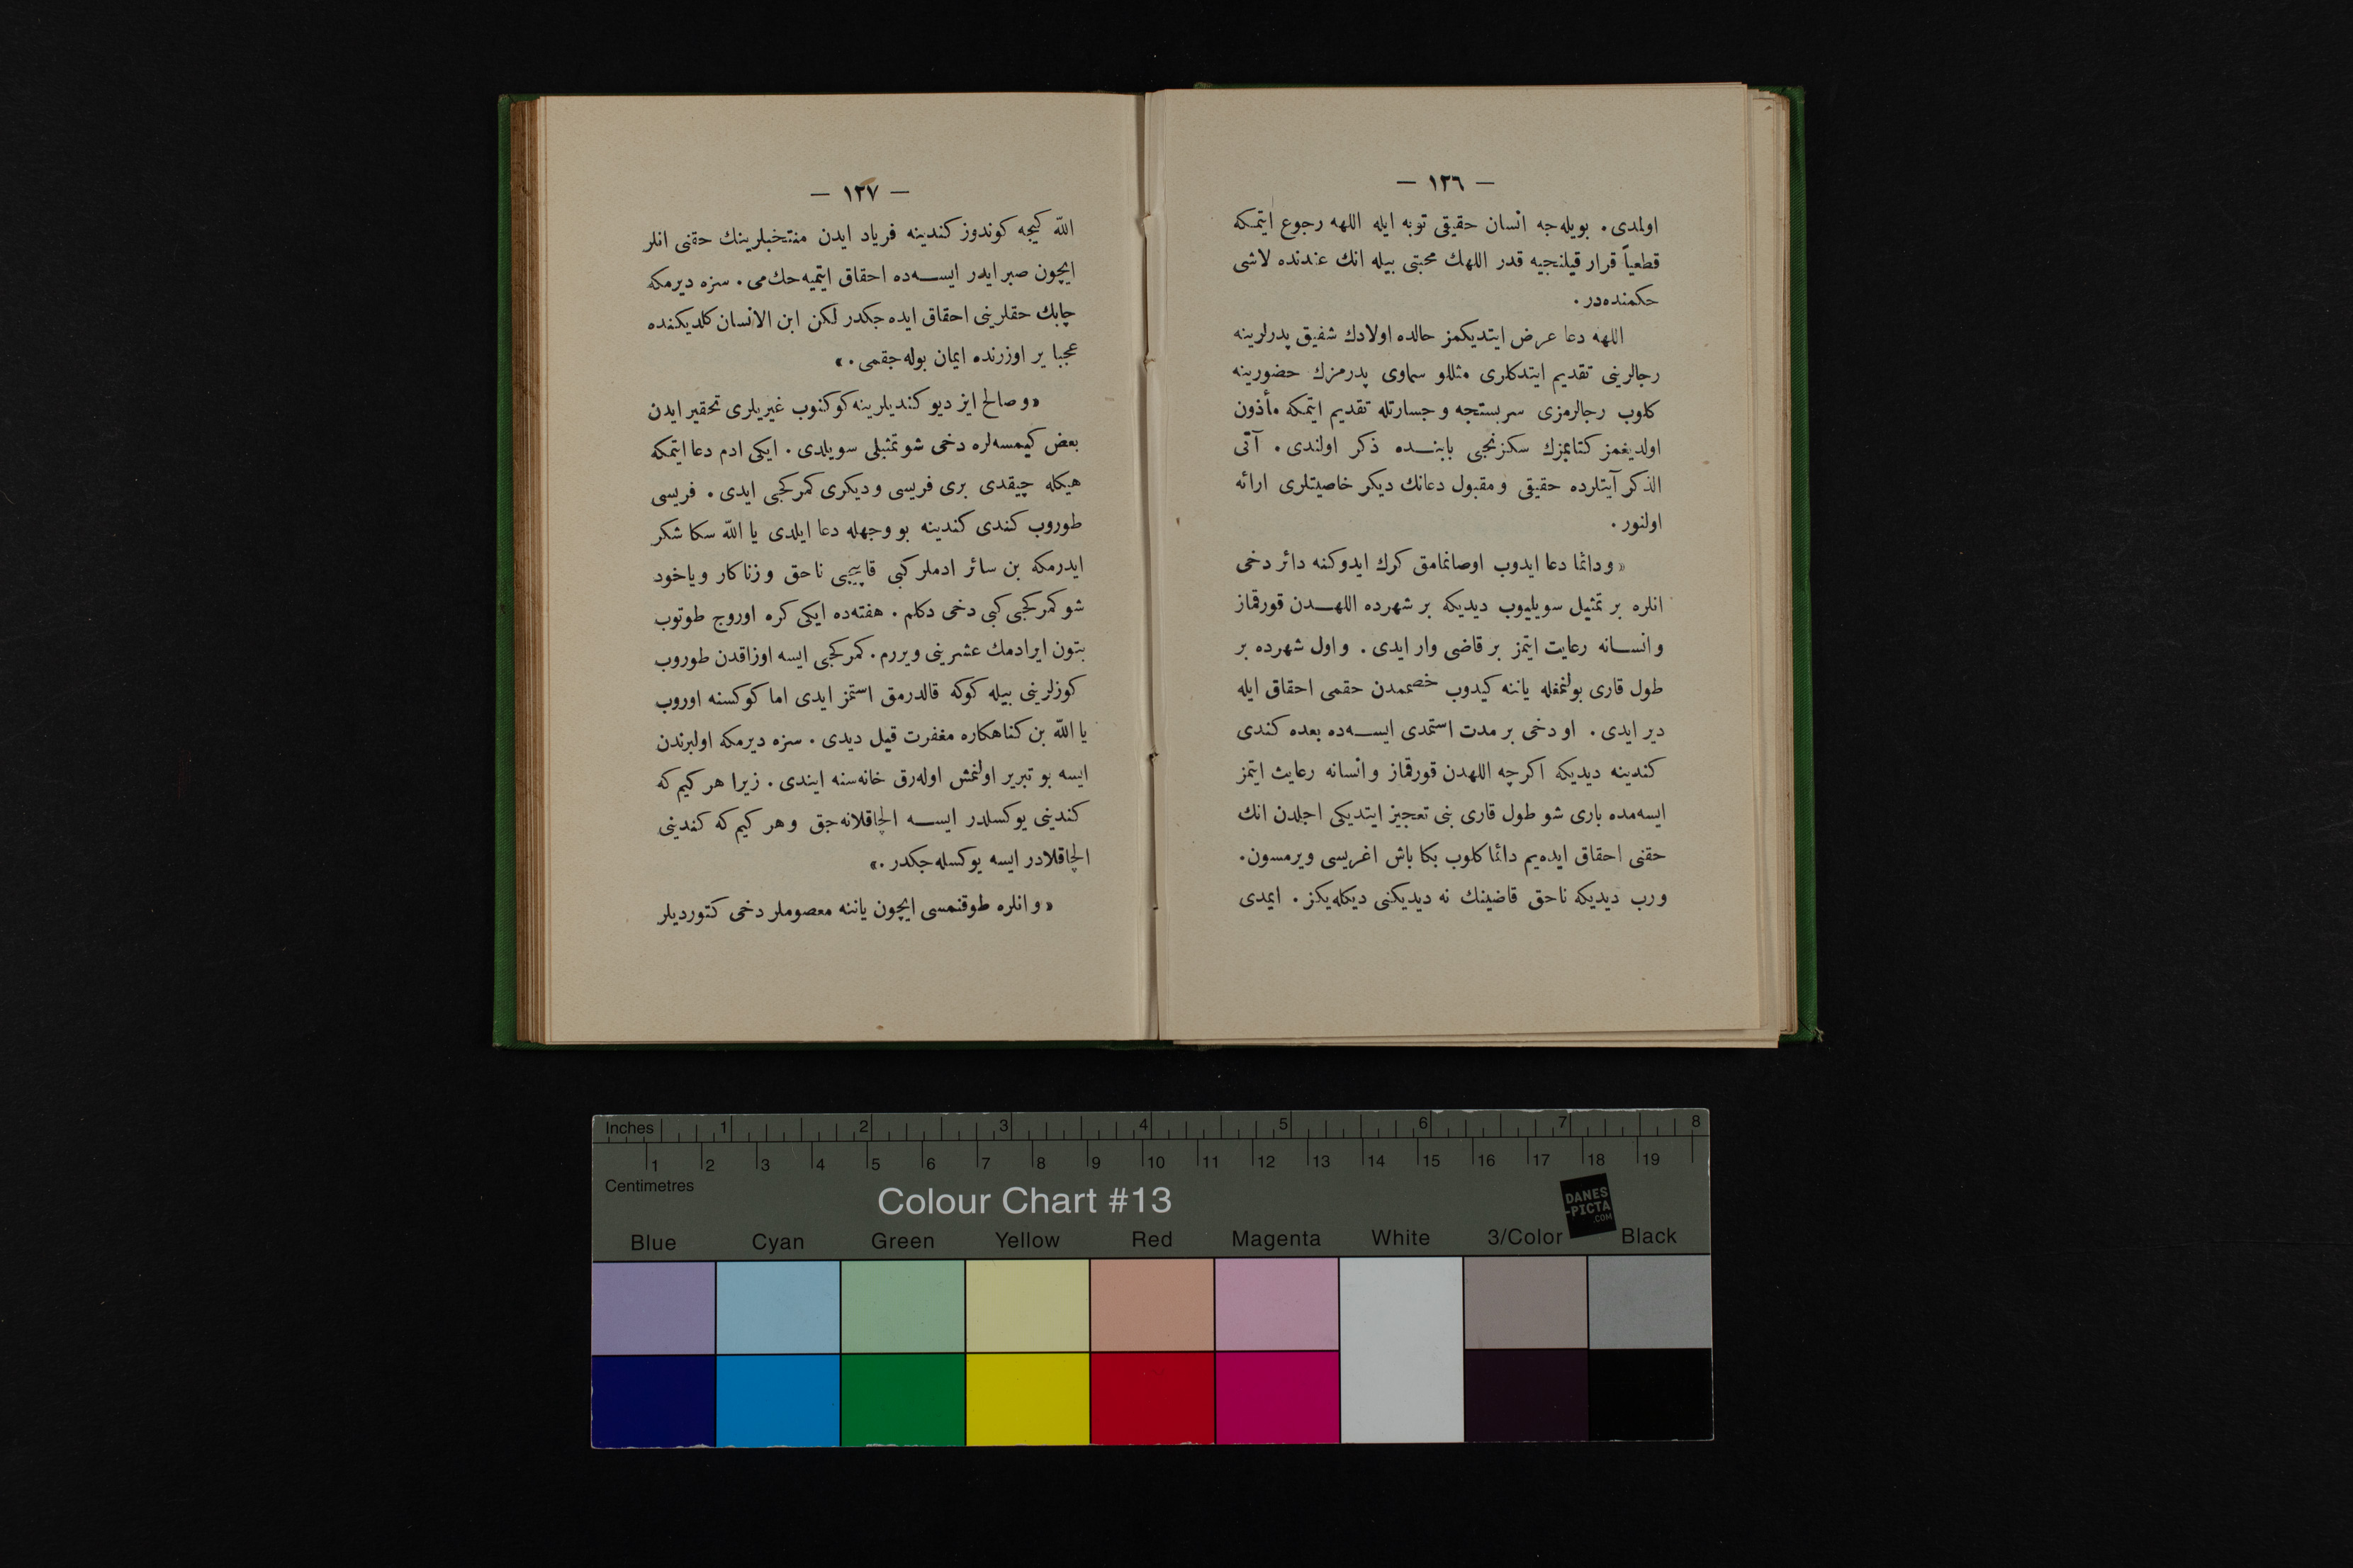 — ١٣٦ —
اولمدی . بویله‌جه انسان حقیقی توبه ایله اللهه رجوع ایتمکه
قطعیاً قرار قیلنجیه قدر اللهك محبتی بیله انك عندنده لاشی
حکمنده‌در .
اللهه دعا عرض ایتدیکمز حالده اولادك شفیق پدرلرینه
رجالرینی تقدیم ایتدکلری مثللو سماوی پدرمزك حضورینه
کلوب رجالرمزی سربستجه و جسارتله تقدیم ایتمکه مأذون
اولدیغمز کتابمزك سکزنجی بابنده ذکر اولندی . آتی
الذکر آیتلرده حقیقی و مقبول دعانك دیکر خاصیتلری ارائه
اولنور .
« و دائما دعا ایدوب اوصانمامق کرك ایدوکنه دائر دخی
انلره بر تمثیل سویلیوب دیدیکه بر شهرده اللهدن قورقماز
و انسانه رعایت ایتمز بر قاضی وار ایدی . و اول شهرده بر
طول قاری بولنمغله یاننه کیدوب خصممدن حقمی احقاق ایله
دیر ایدی . او دخی بر مدت استمدی ایسه‌ده بعده کندی
کندینه دیدیکه اکرچه اللهدن قورقماز و انسانه رعایت ایتمز
ایسه‌مده باری شو طول قاری بنی تعجیز ایتدیکی اجلدن انك
حقنی احقاق ایده‌یم دائما کلوب بکا باش اغریسی ویرمسون .
و رب دیدیکه ناحق قاضینك نه دیدیکنی دیکله‌یکز . ایمدی
— ١٣٧ —
اللّه کیجه کوندوز کندینه فریاد ایدن منتخبلرینك حقنی انلر
ایچون صبر ایدر ایسه‌ده احقاق ایتمیه‌جك‌می . سزه دیرمکه
چابك حقلرینی احقاق ایده‌جکدر لکن ابن الانسان کلدیکنده
عجبا یر اوزرنده ایمان بوله‌جقمی . »
« و صالح ایز دیو کندیلرینه کوکنوب غیریلری تحقیر ایدن
بعض کیمسه‌لره دخی شو تمثیلی سویلدی . ایکی ادم دعا ایتمکه
هیکله چیقدی بری فریسی و دیکری کمرکجی ایدی . فریسی
طوروب کندی کندینه بو وجهله دعا ایلدی یا اللّه سکا شکر
ایدرمکه بن سائر ادملر کبی قاپیجی ناحق و زناکار و یاخود
شو کمرکجی کبی دخی دکلم . هفته‌ده ایکی کره اوروج طوتوب
بتون ایرادمك عشرینی ویررم . کمرکجی ایسه اوزاقدن طوروب
کوزلرینی بیله کوکه قالدرمق استمز ایدی اما کوکسنه اوروب
یا اللّه بن کناهکاره مغفرت قیل دیدی . سزه دیرمکه اولبرندن
ایسه بو تبریر اولنمش اوله‌رق خانه‌سنه ایندی . زیرا هر کیم که
کندینی یوکسلدر ایسه الچاقلانه‌جق و هر کیم که کندینی
الچاقلادر ایسه یوکسله‌جکدر . »
« و انلره طوقنمسی ایچون یاننه معصوملر دخی کتوردیلر
Inches 1 2 3 4 5 6 7 8
1 2 3 4 5 6 7 8 9 10 11 12 13 14 15 16 17 18 19
Centimetres
Colour Chart #13
DANES
-PICTA
.COM
Blue Cyan Green Yellow Red Magenta White 3/Color Black